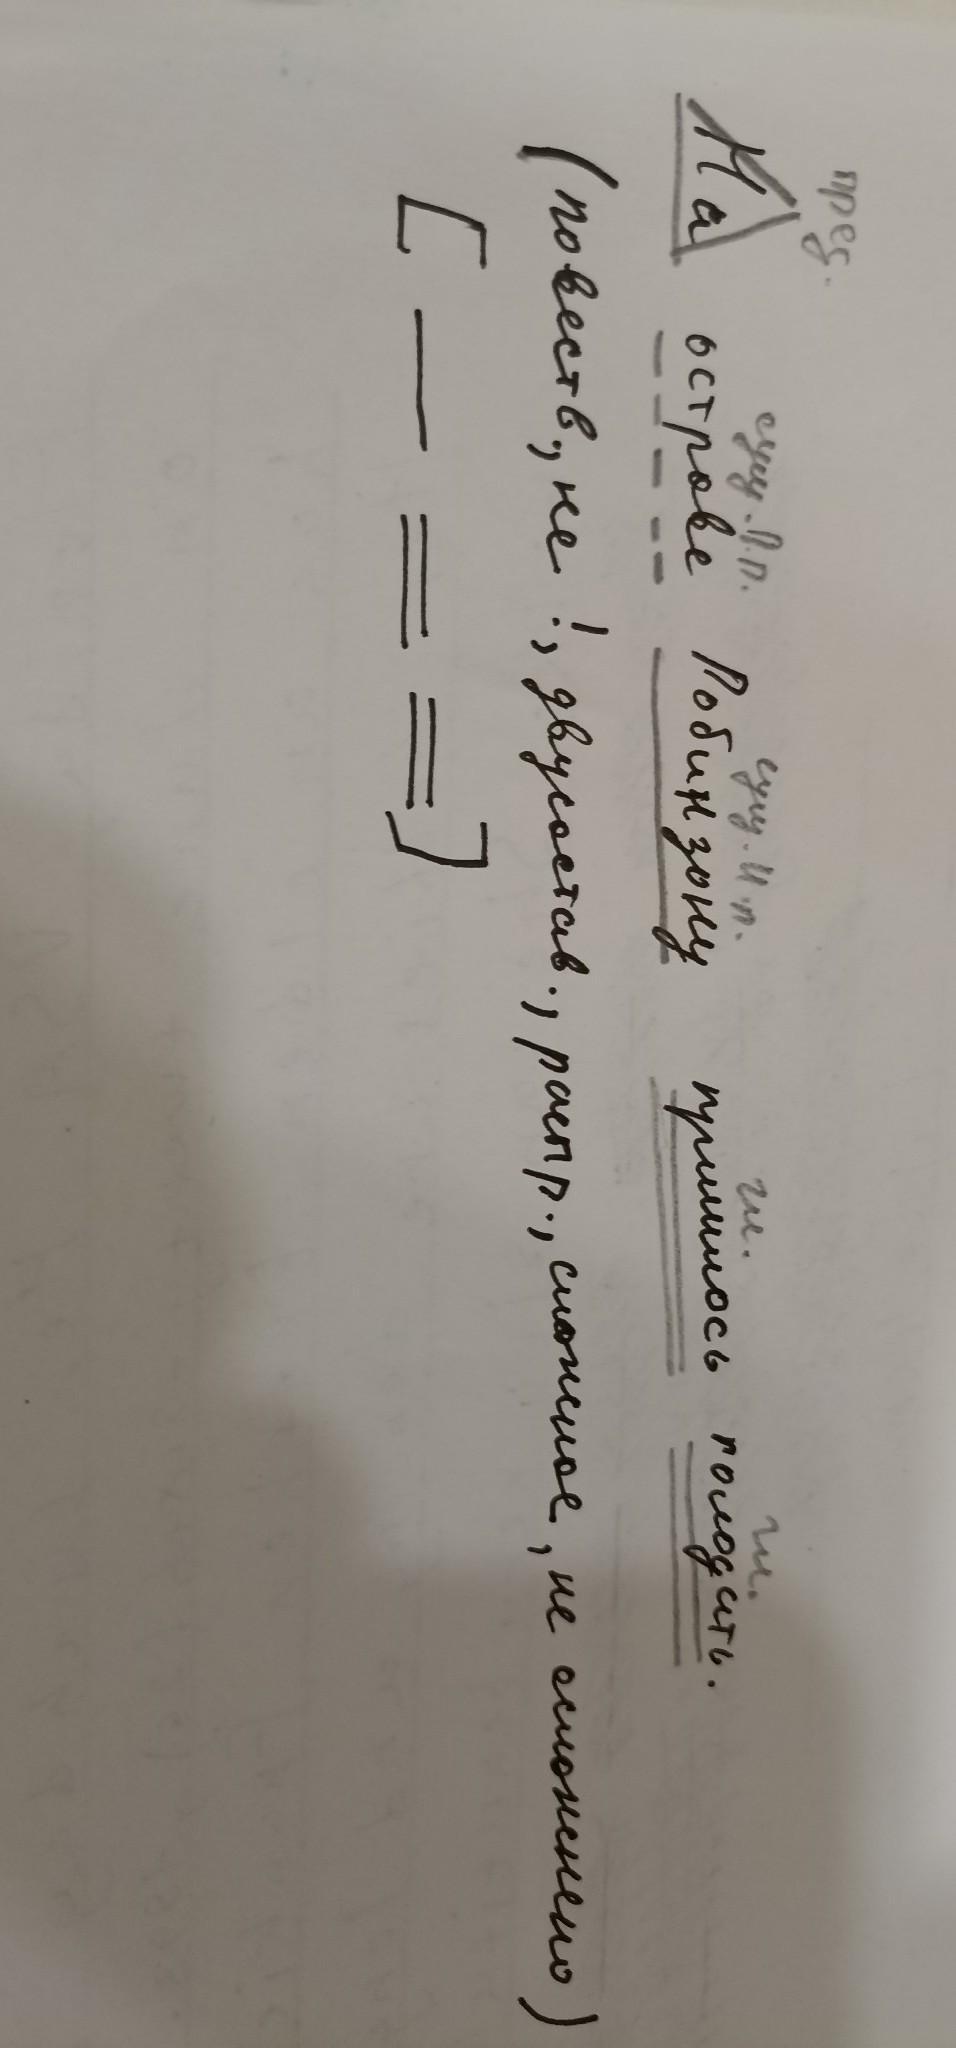 пред. сущ. П.п. сущ. И.п. гл. гл.
На острове Робинзону пришлось голодать.
(повеств., не !, двусостав., распр., сложное, не осложнено)
[ — = = ]